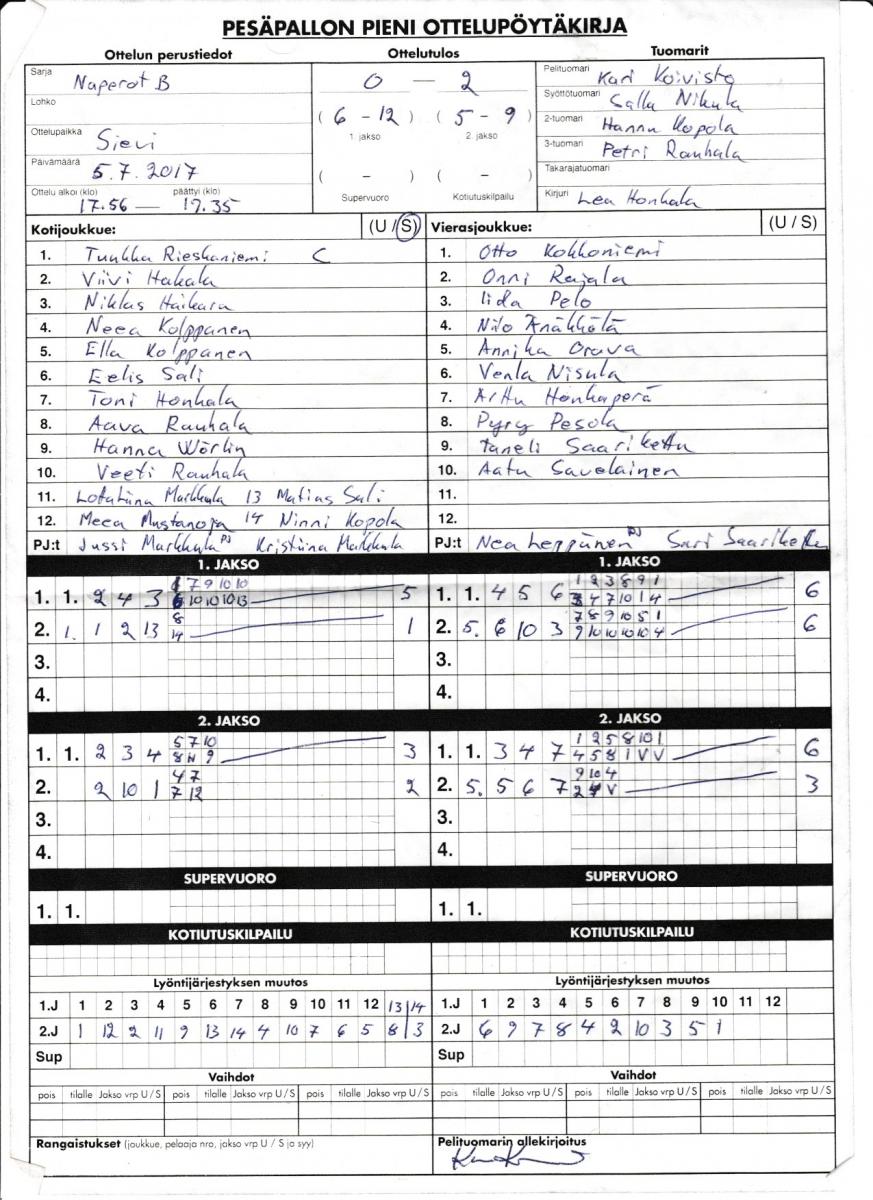 PESÄPALLON PIENI OTTELUPÖYTÄKIRJA
Ottelun perustiedot Ottelutulos Tuomarit
Sarja Naperot B
Lohko
Ottelupaikka Sievi
Päivämäärä 5.7.2017
Ottelu alkoi (klo) päättyi (klo)
17.56 — 19.35
0 — 2
( 6 - 12 ) ( 5 - 9 )
1. jakso 2. jakso
( - ) ( - )
Supervuoro Kotiutuskilpailu
Pelituomari Kari Koivisto
Syöttötuomari Salla Nikula
2-tuomari Hannu Kopola
3-tuomari Petri Rauhala
Takarajatuomari
Kirjuri Lea Honkala
Kotijoukkue: (U / S)
1. Tuukka Rieskaniemi C
2. Viivi Hakala
3. Niklas Haikara
4. Neea Kolppanen
5. Ella Kolppanen
6. Eelis Sali
7. Toni Honkala
8. Aava Rauhala
9. Hanna Wörlin
10. Veeti Rauhala
11. Lotatuuna Markkula 13 Matias Sali
12. Meea Mustanoja 14 Ninni Kopola
PJ:t Jussi Markkula PJ Kristiina Markkula
Vierasjoukkue: (U / S)
1. Otto Kokkoniemi
2. Onni Rajala
3. Iida Pelo
4. Niilo Änäkkälä
5. Annika Orava
6. Venla Nisula
7. Arttu Honkaperä
8. Pyry Pesola
9. Taneli Saarikettu
10. Aatu Savelainen
11.
12.
PJ:t Nea Leppänen PJ Sari Saariketu
1. JAKSO
7 9 10 10
1. 1. 2 4 3 6 10 10 10 13 5
8
2. 1. 1 2 13 14 1
3.
4.
1. JAKSO
1 2 3 8 9 1
1. 1. 4 5 6 3 4 7 10 1 4 6
7 8 9 10 5 1
2. 5. 6 10 3 9 10 10 10 10 4 6
3.
4.
2. JAKSO
5 7 10
1. 1. 2 3 4 8 11 9 3
4 7
2. 2 10 1 7 12 2
3.
4.
2. JAKSO
1 2 5 8 10 1
1. 1. 3 4 7 4 5 8 1 V V 6
9 10 4
2. 5. 5 6 7 2 V 3
3.
4.
SUPERVUORO
1. 1.
SUPERVUORO
1. 1.
KOTIUTUSKILPAILU
KOTIUTUSKILPAILU
Lyöntijärjestyksen muutos
1.J 1 2 3 4 5 6 7 8 9 10 11 12 13 14
2.J 1 12 2 11 9 13 14 4 10 7 6 5 8 3
Sup
Lyöntijärjestyksen muutos
1.J 1 2 3 4 5 6 7 8 9 10 11 12
2.J 6 9 7 8 4 2 10 3 5 1
Sup
Vaihdot
pois tilalle Jakso vrp U / S pois tilalle Jakso vrp U / S pois tilalle Jakso vrp U / S
Vaihdot
pois tilalle Jakso vrp U / S pois tilalle Jakso vrp U / S pois tilalle Jakso vrp U / S
Rangaistukset (joukkue, pelaaja nro, jakso vrp U / S ja syy)
Pelituomarin allekirjoitus